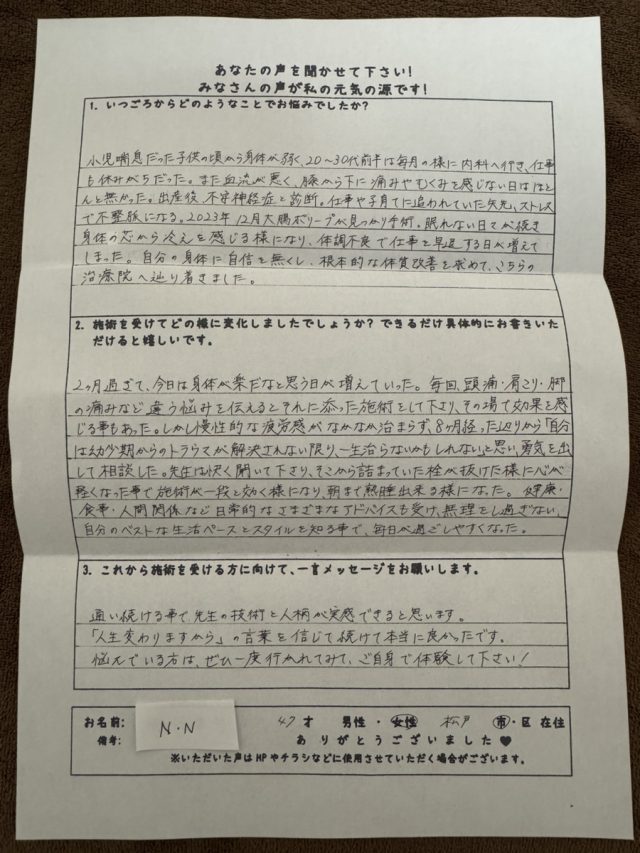 あなたの声を聞かせて下さい!
みなさんの声が私の元気の源です!
1. いつごろからどのようなことでお悩みでしたか?
小児喘息だった子供の頃から身体が弱く、20〜30代前半は毎月の様に内科へ行き、仕事
も休みがちだった。また血流が悪く、膝から下に痛みやむくみを感じない日はほと
んと無かった。出産後 不安神経症と診断。仕事や子育てに追われていた矢先、ストレス
で不整脈になる。2023年12月大腸ポリープが見つかり手術。眠れない日々が続き
身体の芯から冷えを感じる様になり、体調不良で仕事を早退する日が増えて
しまった。自分の身体に自信を無くし、根本的な体質改善を求めて、こちらの
治療院へ辿り着きました。
2. 施術を受けてどの様に変化しましたでしょうか? できるだけ具体的にお書きいた
だけると嬉しいです。
2ヶ月過ぎて、今日は身体が楽だなと思う日が増えていった。毎回、頭痛・肩こり・脚
の痛みなど違う悩みを伝えるとそれに添った施術をして下さり、その場で効果を感
じる事もあった。しかし慢性的な疲労感がなかなか治まらず、8ヶ月経った辺りから「自分
は幼少期からのトラウマが解決されない限り、一生治らないかもしれない」と思い、勇気を出
して相談した。先生は快く聞いて下さり、そこから詰まっていた栓が抜けた様に心が
軽くなった事で施術が一段と効く様になり、朝まで熟睡出来る様になった。健康・
食事・人間関係など日常的なさまざまなアドバイスも受け、無理をし過ぎない、
自分のベストな生活ペースとスタイルを知る事で、毎日が過ごしやすくなった。
3. これから施術を受ける方に向けて、一言メッセージをお願いします。
通い続ける事で先生の技術と人柄が実感できると思います。
「人生変わりますから」の言葉を信じて続けて本当に良かったです。
悩んでいる方は、ぜひ一度行かれてみて、ご自身で体験して下さい!
お名前: N・N 47才 男性・女性 松戸 市・区 在住
備考: ありがとうございました♥
※いただいた声はHPやチラシなどに使用させていただく場合がございます。